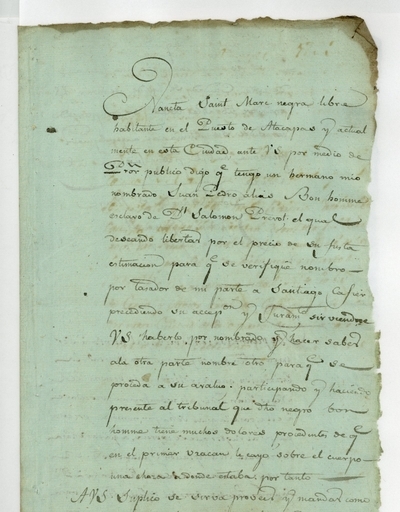 Nancta Saint Marc negra libre
habitante en el Puesto de Atacapas y actual
mente en esta Ciudad ante VS por medio de
Pror público digo q.e tengo un hermano mio
nombrado Juan Pedro alias Bon homme
esclavo de Dn Salomon Prevol: el qual
deseando libertar por el precio de su justa
estimacion para q.e se verifique nombro
por tasador de mi parte a Santiago
precediendo su accep.on y Juram.to sirviendose
VS. haberlo por nombrado y hacer saber
ala otra parte nombre otro para q.e se
proceda a su avaluo: participando y haciendo
presente al tribunal que dho negro bon
homme tiene muchos dolores procedentes de q.e
en el primer uracan le cayó sobre el cuerpo
una choza donde estaba: por tanto
AVS Suplico se sirva proveer y mandar como